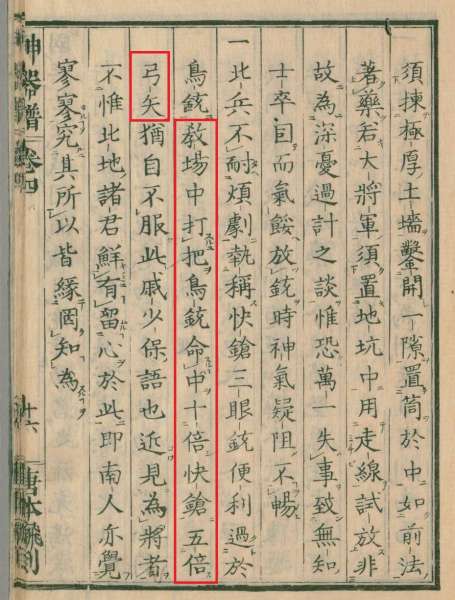 須揀極厚土墻鑿開一隙置筒於中如前法
著藥若大將軍須置地坑中用走線試放非
故為深憂過計之談惟恐萬一失事致無知
士卒因而氣餒放銃時神氣疑阻不暢
一北兵不耐煩劇執稱快鎗三眼銃便利過於
鳥銃教場中打把鳥銃命中十倍快鎗五倍
弓矢猶自不服此戚少保語也近見為將者
不惟北地諸君鮮有留心於此即南人亦覺
寥寥究其所以皆緣罔知為
神器譜 卷四 十六 唐本翻刻